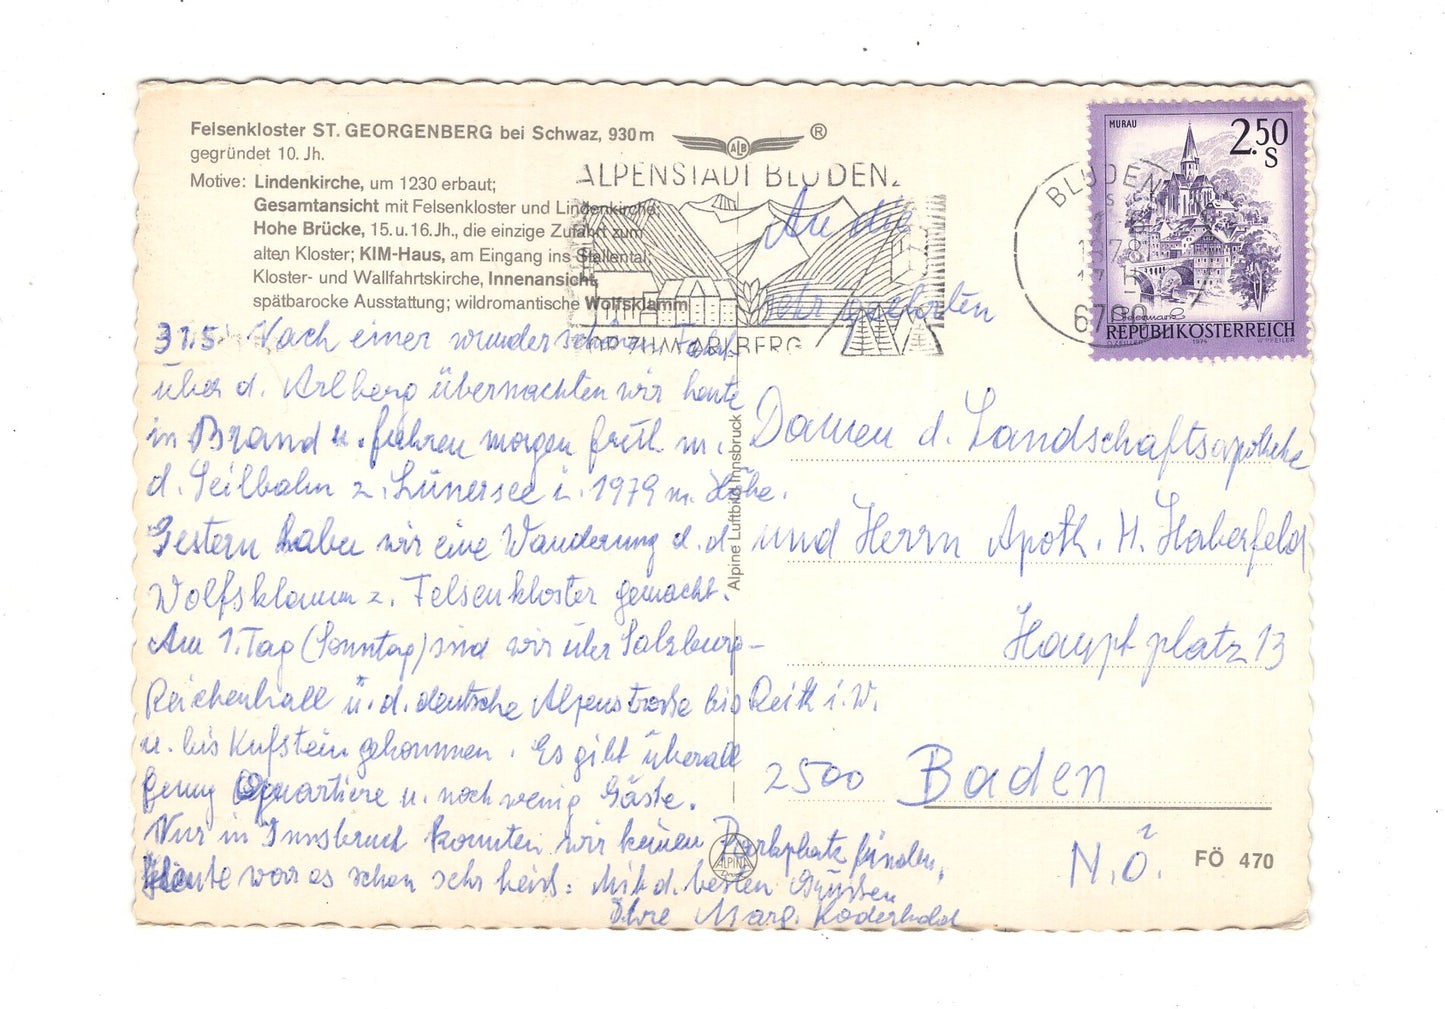 Felsenkloster ST. GEORGENBERG bei Schwaz, 930 m
gegründet 10. Jh.
Motive: Lindenkirche, um 1230 erbaut;
Gesamtansicht mit Felsenkloster und Lindenkirche;
Hohe Brücke, 15. u. 16. Jh., die einzige Zufahrt zum
alten Kloster; KIM-Haus, am Eingang ins Stallental;
Kloster- und Wallfahrtskirche, Innenansicht,
spätbarocke Ausstattung; wildromantische Wolfsklamm
ALB ®
ALPENSTADT BLUDENZ
TOR ZUM ARLBERG
BLUDENZ
17 H
6700
MURAU
2.50
S
Steiermark
REPUBLIK ÖSTERREICH
O. ZEILLER 1974 W. PFEILER
31.5. Nach einer wunderschönen Fahrt
über d. Arlberg übernachten wir heute
in Brand u. fahren morgen früh m.
d. Seilbahn z. Lünersee i. 1979 m. Höhe.
Gestern haben wir eine Wanderung d. d.
Wolfsklamm z. Felsenkloster gemacht.
Am 1. Tag (Sonntag) sind wir über Salzburg-
Reichenhall ü. d. deutsche Alpenstrasse bis Reith i. W.
u. bis Kufstein gekommen. Es gibt überall
genug Quartiere u. noch wenig Gäste.
Nur in Innsbruck konnten wir keinen Parkplatz finden.
Heute war es schon sehr heiss. Mit d. besten Grüssen
Ihre Marg.
Alpine Luftbild Innsbruck
ALPINA
Druck
An die
sehr geehrten
Damen d. Landschaftsapotheke
und Herrn Apoth. H. Haberfeld
Hauptplatz 13
2500 Baden
N.Ö.
FÖ 470